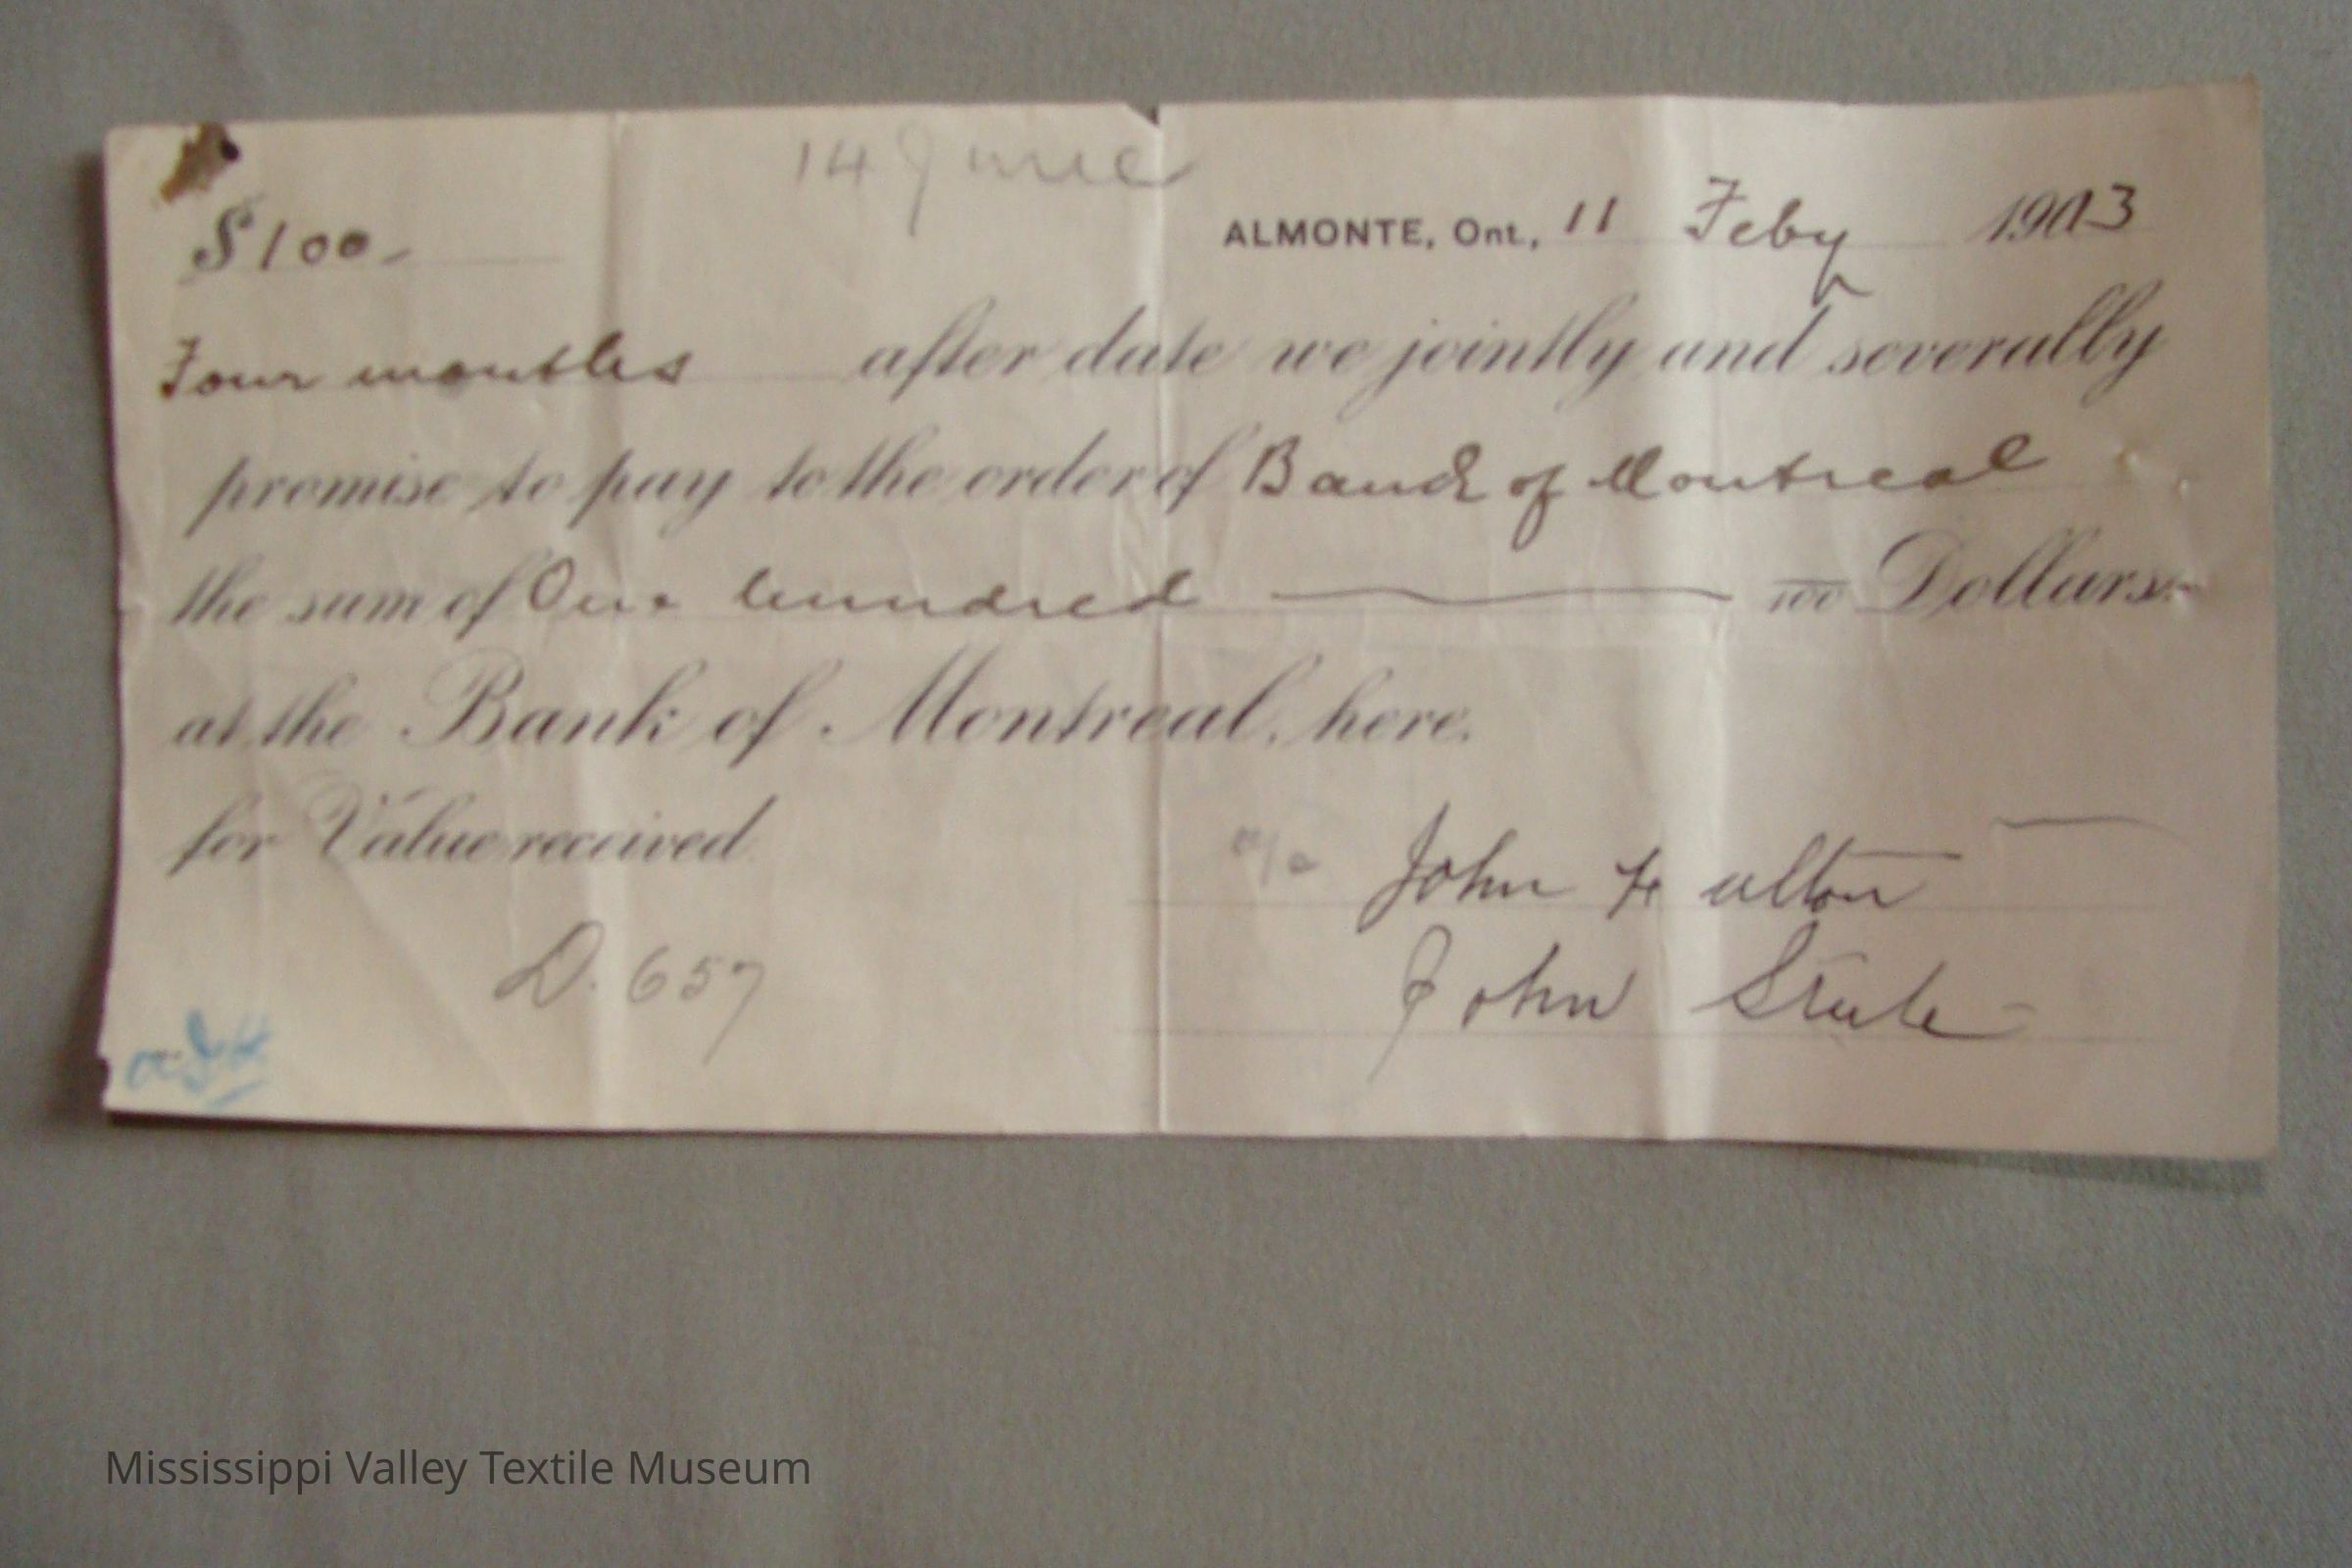 14 June
$100-
ALMONTE, Ont., 11 Feby 1903
Four months after date we jointly and severally
promise to pay to the order of Bank of Montreal
the sum of One hundred 100 Dollars
at the Bank of Montreal, here.
for Value received
John Fulton
John Steele
D. 657
Mississippi Valley Textile Museum